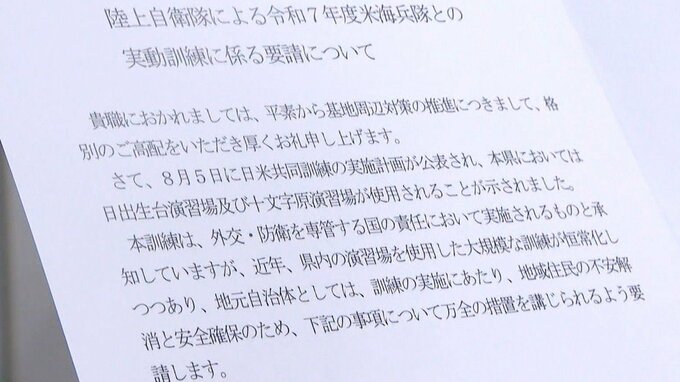 陸上自衛隊による令和7年度米海兵隊との
実動訓練に係る要請について
貴職におかれましては、平素から基地周辺対策の推進につきまして、格
別のご高配をいただき厚くお礼申し上げます。
さて、8月5日に日米共同訓練の実施計画が公表され、本県においては
日出生台演習場及び十文字原演習場が使用されることが示されました。
本訓練は、外交・防衛を専管する国の責任において実施されるものと承
知していますが、近年、県内の演習場を使用した大規模な訓練が恒常化し
つつあり、地元自治体としては、訓練の実施にあたり、地域住民の不安解
消と安全確保のため、下記の事項について万全の措置を講じられるよう要
請します。